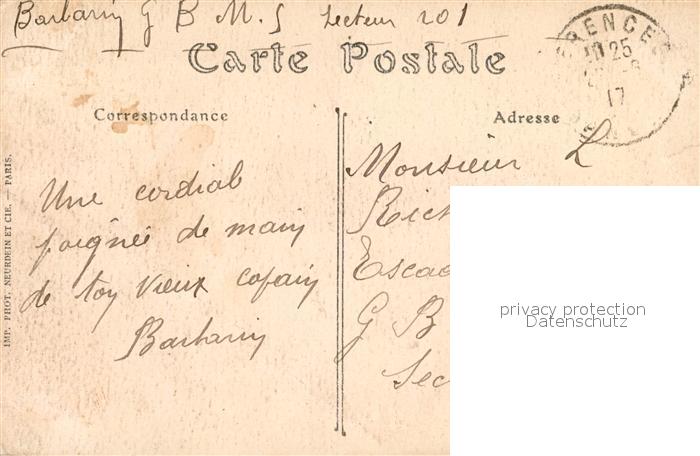 Barbarin G B M. S Secteur 201
Carte Postale
Correspondance
Adresse
25
17
Monsieur L
Une cordial
poignée de main
de ton vieux copain
Barbarin
G B
Sec
IMP. PHOT. NEURDEIN ET CIE. — PARIS.
privacy protection
Datenschutz